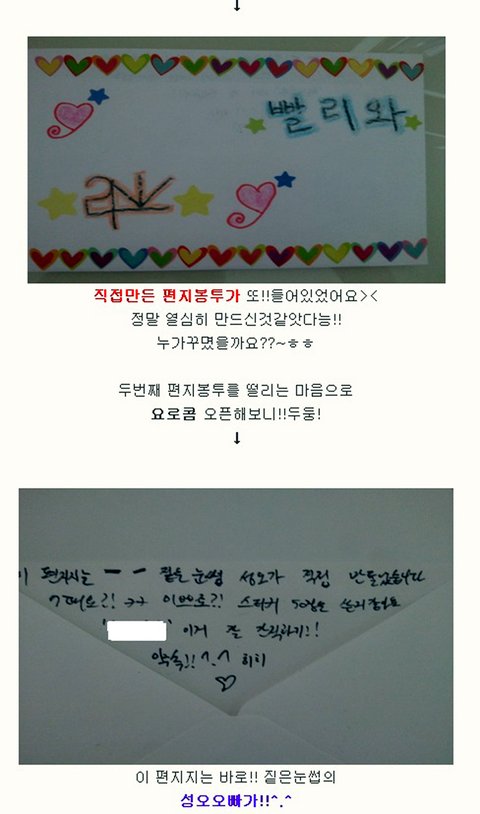 ↓
빨리와
직접만든 편지봉투가 또!!들어있었어요><
정말 열심히 만드신것같앗다능!!
누가꾸몄을까요??~ㅎㅎ
두번째 편지봉투를 떨리는 마음으로
요로콤 오픈해보니!!두둥!
↓
이 편지지는 ㅡ ㅡ 짙은눈썹 성오가 직접 만들었습니다
이쁘죠?! 스티커 50장은
이거 잘 간직하기!!
약속!! ^.^ 히히
♡
이 편지지는 바로!! 짙은눈썹의
성오오빠가!!^.^